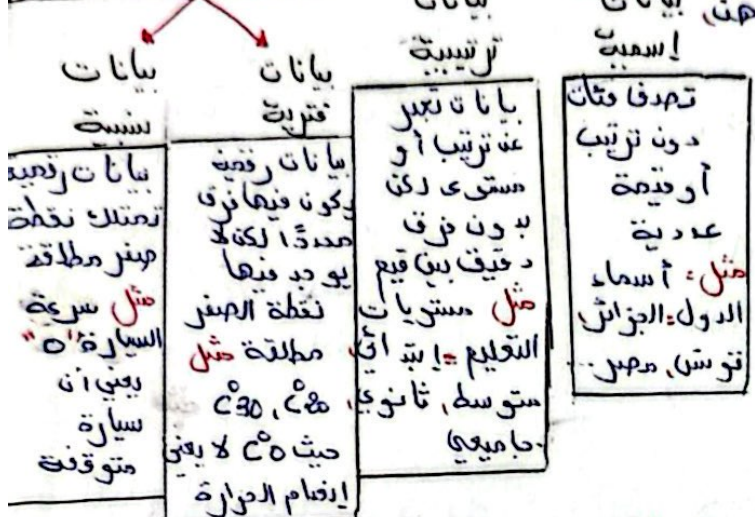 بيانات
إسمية
تصف فئات
دون ترتيب
أو قيمة
عددية
مثل: أسماء
الدول: الجزائر،
تونس، مصر...
بيانات
ترتيبية
بيانات تعبر
عن ترتيب أو
مستوى لكن
بدون فرق
دقيق بين قيم
مثل مستويات
التعليم = إبتدائي،
متوسط، ثانوي،
جامعي.
بيانات
فترية
بيانات رقمية
يكون فيها فرق
محددًا لكن لا
يوجد فيها
نقطة الصفر
مطلقة مثل
20°C، 30°C
حيث 0°C لا يعني
إنعدام الحرارة
بيانات
نسبية
بيانات رقمية
تمتلك نقطة
صفر مطلقة
مثل سرعة
السيارة "0"
يعني أن
سيارة
متوقفة